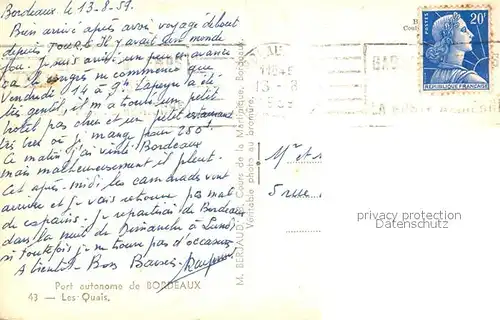 Bordeaux le 13-8-57.
Bien arrivé après avoir voyagé debout
depuis TOURS. Il y avait un monde
fou. Je suis arrivé un peu en avance
car le congrès ne commence que
Vendredi 14 à 9h. Lapeyre a été
très gentil, il m'a trouvé un petit
hotel pas cher et un petit restaurant
très bien où je mange pour 250f.
Ce matin j'ai visité Bordeaux
mais malheureusement il pleut.
Cet après-midi les camarades vont
arriver et je vais retrouver pas mal
de copains. Je repartirai de Bordeaux
dans la nuit de Dimanche à Lundi
si toutefois je ne trouve pas d'occasion
A bientôt - Bons Baisers.
Port autonome de BORDEAUX
43 — Les Quais.
M. BERJAUD, Cours de la Martinique, Bordeaux
Véritable photo au bromure.
13 - 8
POSTES
20F
REPUBLIQUE FRANÇAISE
Mr et
5 rue
privacy protection
DELCAMPE